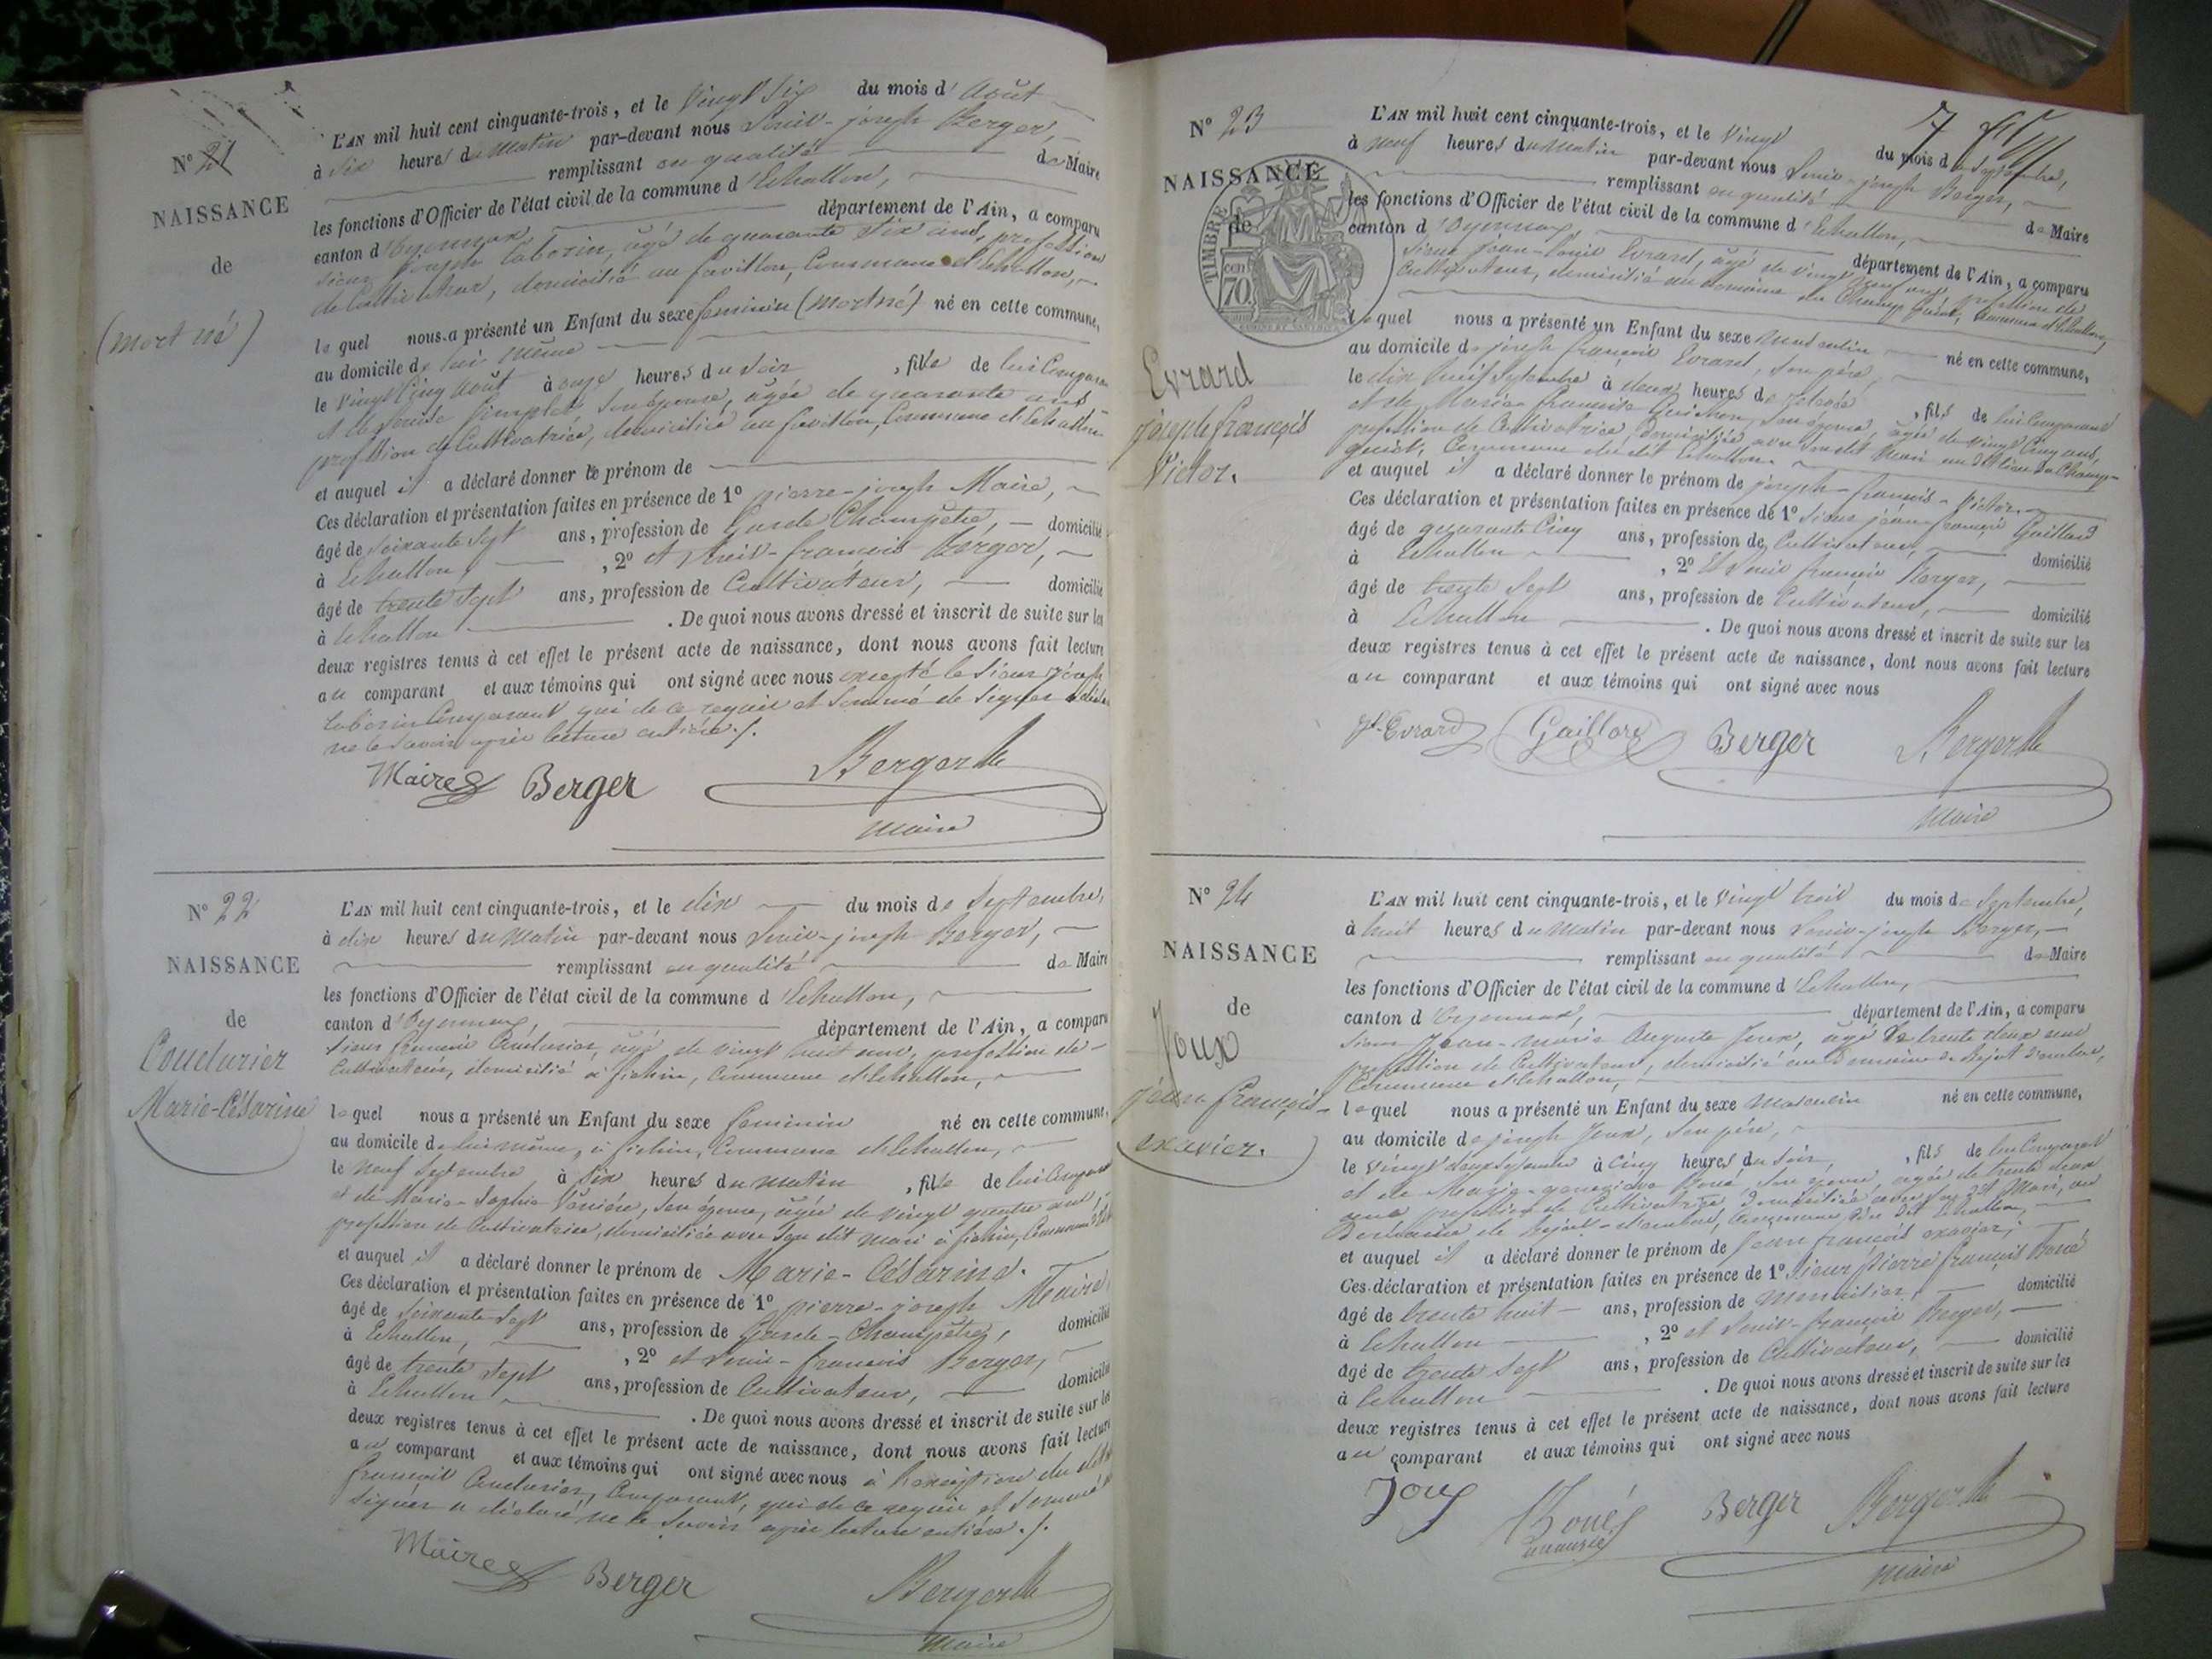 N° 21
NAISSANCE
de
(mort né)
L'AN mil huit cent cinquante-trois, et le vingt Six du mois d'Août
à Six heures du Matin par-devant nous Louis-joseph Berger,
remplissant en qualité de Maire
les fonctions d'Officier de l'état civil de la commune d'Echallon,
canton d'Oyonnax, département de l'Ain, a comparu
Sieur joseph, âgé de quarante Six ans, profession
de Cultivateur, domicilié au favillon, Commune d'Echallon,
lequel nous a présenté un Enfant du sexe feminin (mort né) né en cette commune,
au domicile de lui même
le vingt Cinq Août à onze heures du Soir, fille de lui Comparant
et de Louise, Son épouse, agée de quarante ans
profession de Cultivatrice, domiciliée au favillon, Commune d'Echallon
et auquel il a déclaré donner le prénom de
Ces déclaration et présentation faites en présence de 1° pierre-joseph Maire,
âgé de Soixante Sept ans, profession de Garde Champêtre, domicilié
à Echallon, , 2° et Louis-françois Berger,
âgé de trente Sept ans, profession de Cultivateur, domicilié
à Echallon . De quoi nous avons dressé et inscrit de suite sur les
deux registres tenus à cet effet le présent acte de naissance, dont nous avons fait lecture
au comparant et aux témoins qui ont signé avec nous excepté le Sieur joseph
Comparant qui de ce requis et Sommé de Signer a déclaré
ne le Savoir après lecture entière ./.
Maire Berger Berger
Maire
N° 22
NAISSANCE
de
Coudurier
Marie-Césarine
L'AN mil huit cent cinquante-trois, et le dix du mois de Septembre,
à dix heures du Matin par-devant nous Louis-joseph Berger,
remplissant en qualité de Maire
les fonctions d'Officier de l'état civil de la commune d'Echallon,
canton d'Oyonnax, département de l'Ain, a comparu
Sieur françois Coudurier, âgé de vingt huit ans, profession de
Cultivateur, domicilié à, Commune d'Echallon,
lequel nous a présenté un Enfant du sexe feminin né en cette commune,
au domicile de lui même, à, Commune d'Echallon,
le neuf Septembre à Six heures du matin, fille de lui Comparant
et de Marie-Sophie, Son épouse, agée de vingt quatre ans,
profession de Cultivatrice, domiciliée avec Son dit Mari à, Commune
et auquel il a déclaré donner le prénom de Marie-Césarine.
Ces déclaration et présentation faites en présence de 1° pierre-joseph Maire,
âgé de Soixante Sept ans, profession de Garde-Champêtre, domicilié
à Echallon, , 2° et Louis-francois Berger,
âgé de trente Sept ans, profession de Cultivateur, domicilié
à Echallon . De quoi nous avons dressé et inscrit de suite sur les
deux registres tenus à cet effet le présent acte de naissance, dont nous avons fait lecture
au comparant et aux témoins qui ont signé avec nous à l'exception du dit
françois Coudurier, Comparant, qui de ce requis et Sommé
Signer a déclaré ne le Savoir après lecture entière ./.
Maire Berger Berger
Maire
7
N° 23
NAISSANCE
de
TIMBRE
cen.
70.
Evrard
joseph françois
Victor.
L'AN mil huit cent cinquante-trois, et le vingt du mois de Septembre,
à neuf heures du Matin par-devant nous Louis-joseph Berger,
remplissant en qualité de Maire
les fonctions d'Officier de l'état civil de la commune d'Echallon,
canton d'Oyonnax, département de l'Ain, a comparu
Sieur jean-Louis Evrard, âgé de vingt neuf ans, profession de
Cultivateur, domicilié au domaine du Champ, Commune d'Echallon,
lequel nous a présenté un Enfant du sexe Masculin né en cette commune,
au domicile de joseph françois Evrard, Son père,
le dix neuf Septembre à deux heures de relevée, fils de lui Comparant
et de Marie-francoise, Son épouse, agée de vingt Cinq ans,
profession de Cultivatrice, domiciliée avec Son dit Mari au dit lieu du Champ-
Commune du dit Echallon.
et auquel il a déclaré donner le prénom de joseph-francois-Victor.
Ces déclaration et présentation faites en présence de 1° Sieur jean-françois Gaillard
âgé de quarante Cinq ans, profession de Cultivateur, domicilié
à Echallon , 2° Et Louis françois Berger,
âgé de trente Sept ans, profession de Cultivateur, domicilié
à Echallon . De quoi nous avons dressé et inscrit de suite sur les
deux registres tenus à cet effet le présent acte de naissance, dont nous avons fait lecture
au comparant et aux témoins qui ont signé avec nous
Evrard Gaillard Berger Berger
Maire
N° 24
NAISSANCE
de
Joux
jean françois-
exavier.
L'AN mil huit cent cinquante-trois, et le vingt trois du mois de Septembre,
à huit heures du Matin par-devant nous Louis-joseph Berger,
remplissant en qualité de Maire
les fonctions d'Officier de l'état civil de la commune d'Echallon,
canton d'Oyonnax, département de l'Ain, a comparu
Sieur Jean-marie Auguste Joux, âgé de trente deux ans
profession de Cultivateur, domicilié au Domaine de,
Commune d'Echallon,
lequel nous a présenté un Enfant du sexe masculin né en cette commune,
au domicile de joseph Joux, Son père,
le vingt deux Septembre à Cinq heures du Soir, , fils de lui Comparant
et de Marie-genevieve, Son épouse, agée de trente deux
ans profession de Cultivatrice domiciliée avec Son dit Mari, au
Domaine de, Commune du dit Echallon,
et auquel il a déclaré donner le prénom de Jean françois exavier;
Ces déclaration et présentation faites en présence de 1° Sieur pierre françois
âgé de trente huit ans, profession de menuisier, domicilié
à Echallon , 2° et Louis-françois Berger,
âgé de trente Sept ans, profession de Cultivateur, domicilié
à Echallon . De quoi nous avons dressé et inscrit de suite sur les
deux registres tenus à cet effet le présent acte de naissance, dont nous avons fait lecture
au comparant et aux témoins qui ont signé avec nous
Joux Berger Berger
Maire